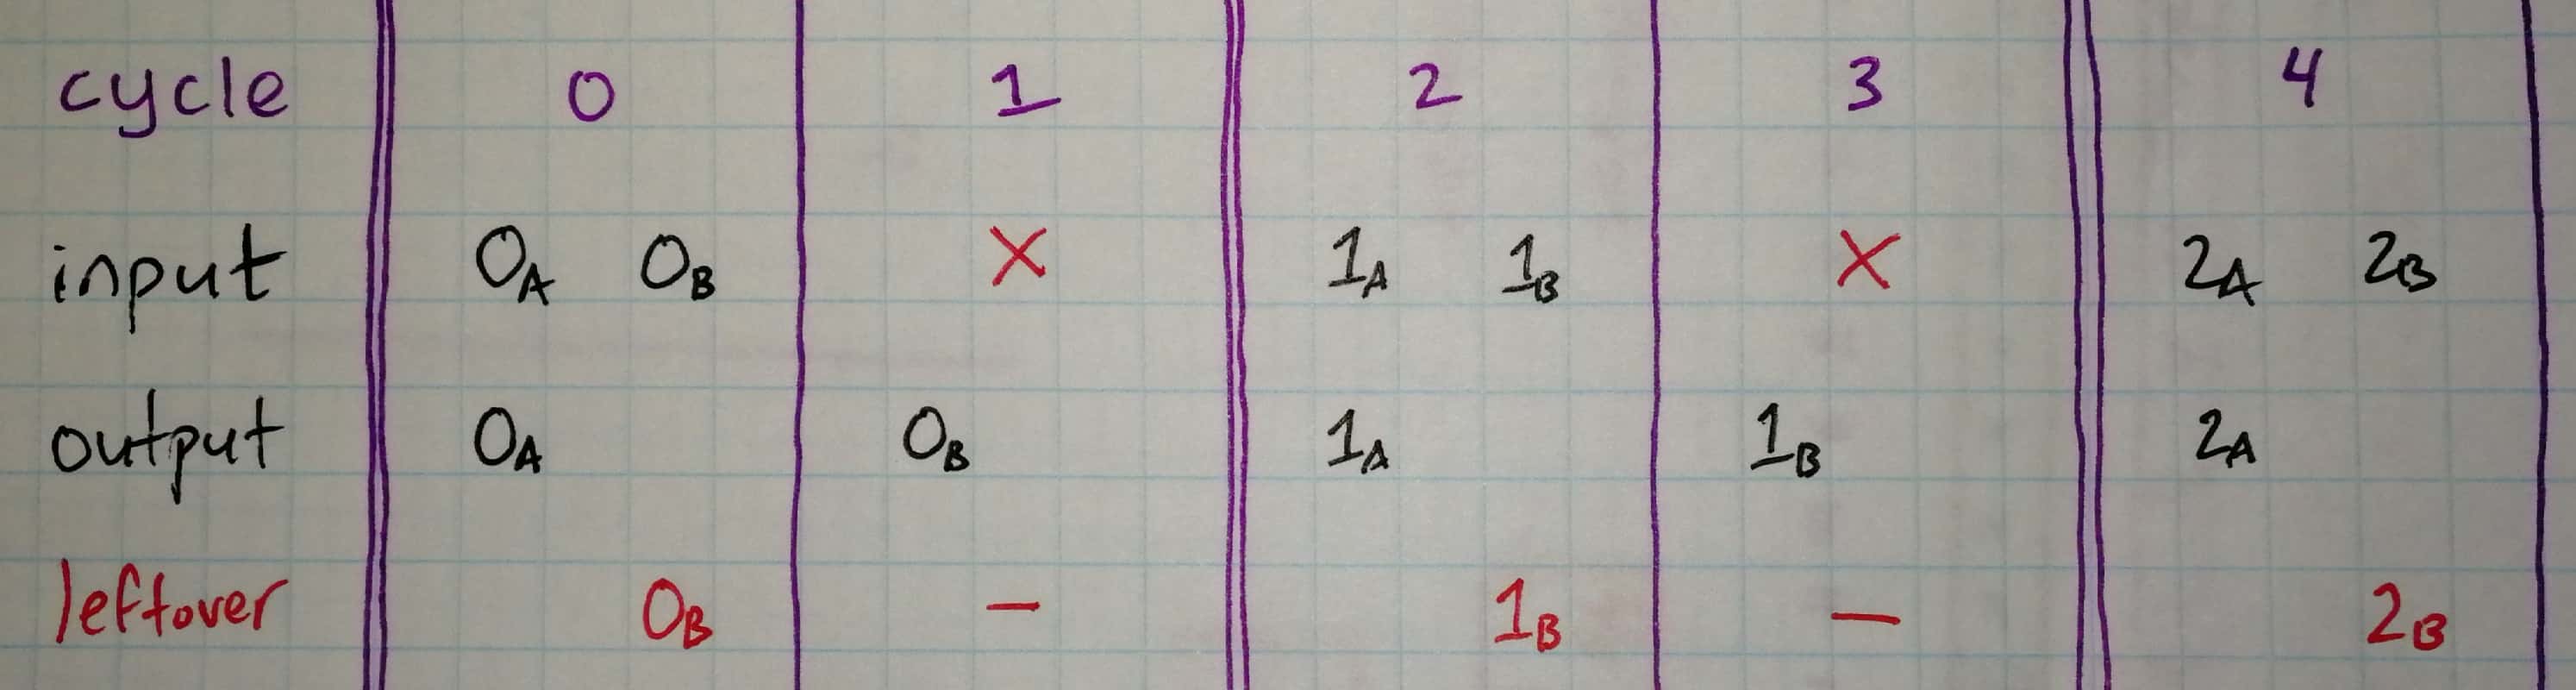 cycle 0 1 2 3 4
input 0A 0B X 1A 1B X 2A 2B
output 0A 0B 1A 1B 2A
leftover 0B – 1B – 2B